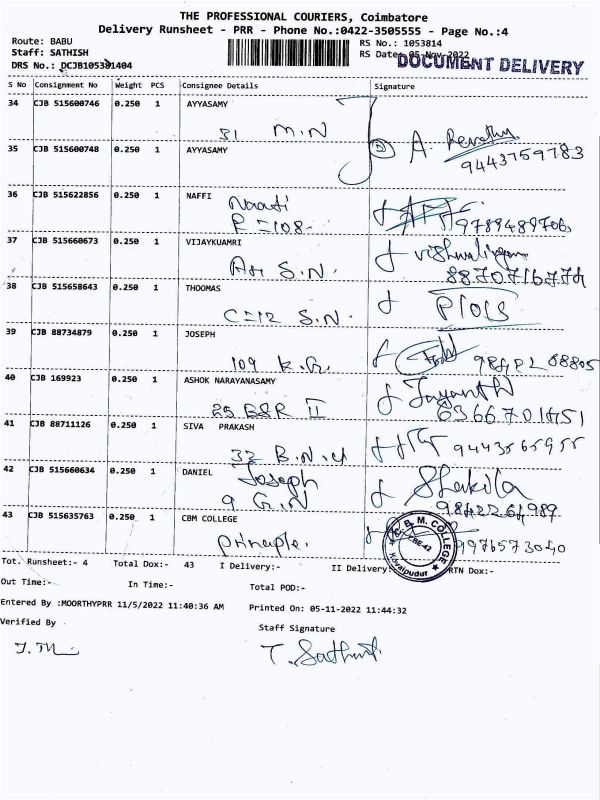 THE PROFESSIONAL COURIERS, Coimbatore
Delivery Runsheet - PRR - Phone No.:0422-3505555 - Page No.:4
Route: BABU
Staff: SATHISH
DRS No.: DCJB105381404
RS No.: 1053814
RS Date: 05-Nov-2022
DOCUMENT DELIVERY
S No Consignment No Weight PCS Consignee Details Signature
34 CJB 515600746 0.250 1 AYYASAMY
31 M.N
35 CJB 515600748 0.250 1 AYYASAMY
A. Revathy
9443759783
36 CJB 515622856 0.250 1 NAFFI
9789489706
37 CJB 515660673 0.250 1 VIJAYKUAMRI
S.N.
8870716774
38 CJB 515658643 0.250 1 THOOMAS
C=12 S.N.
39 CJB 88734879 0.250 1 JOSEPH
109 K.G.
40 CJB 169923 0.250 1 ASHOK NARAYANASAMY
Jayanth
25 BSR II
6366701451
41 CJB 88711126 0.250 1 SIVA PRAKASH
9443565955
42 CJB 515660634 0.250 1 DANIEL
Joseph
Shakila
9 G.N
43 CJB 515635763 0.250 1 CBM COLLEGE
Principle.
9976573040
C. B. M. COLLEGE
CBE-42
Kovaipudur
Tot. Runsheet:- 4 Total Dox:- 43 I Delivery:- II Delivery RTN Dox:-
Out Time:- In Time:- Total POD:-
Entered By :MOORTHYPRR 11/5/2022 11:40:36 AM Printed On: 05-11-2022 11:44:32
Verified By Staff Signature
T. Sathish